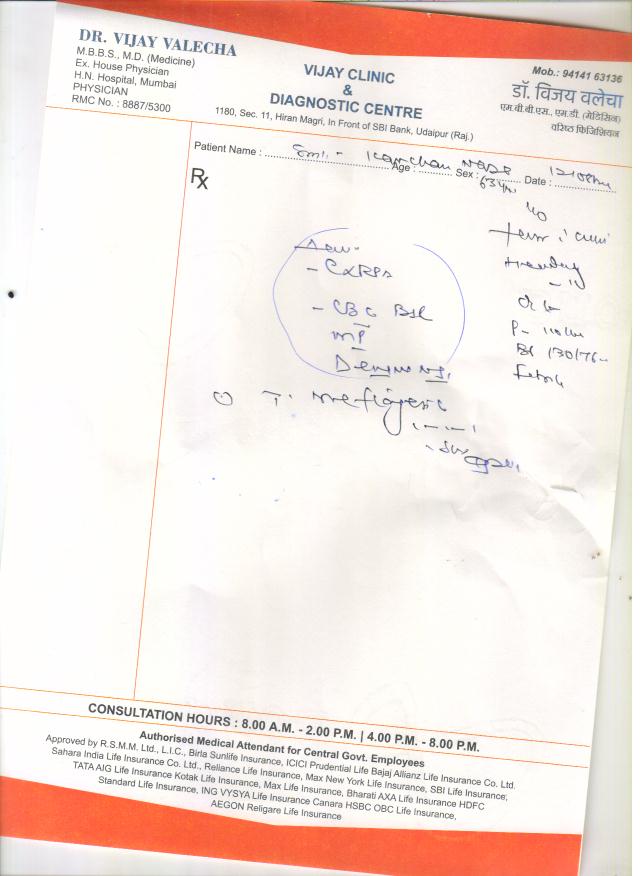 DR. VIJAY VALECHA
M.B.B.S., M.D. (Medicine)
Ex. House Physician
H.N. Hospital, Mumbai
PHYSICIAN
RMC No. : 8887/5300
VIJAY CLINIC
&
DIAGNOSTIC CENTRE
1180, Sec. 11, Hiran Magri, In Front of SBI Bank, Udaipur (Raj.)
Mob.: 94141 63136
डॉ. विजय वलेचा
एम.बी.बी.एस., एम.डी. (मेडिसिन)
वरिष्ठ फिजिशियन
Patient Name : Smt. Kanchan Age : Sex : 63 Date :
Rx
- CBC
MP
P- 110
130/76
CONSULTATION HOURS : 8.00 A.M. - 2.00 P.M. | 4.00 P.M. - 8.00 P.M.
Authorised Medical Attendant for Central Govt. Employees
Approved by R.S.M.M. Ltd., L.I.C., Birla Sunlife Insurance, ICICI Prudential Life Bajaj Allianz Life Insurance Co. Ltd.
Sahara India Life Insurance Co. Ltd., Reliance Life Insurance, Max New York Life Insurance, SBI Life Insurance;
TATA AIG Life Insurance Kotak Life Insurance, Max Life Insurance, Bharati AXA Life Insurance HDFC
Standard Life Insurance, ING VYSYA Life Insurance Canara HSBC OBC Life Insurance,
AEGON Religare Life Insurance